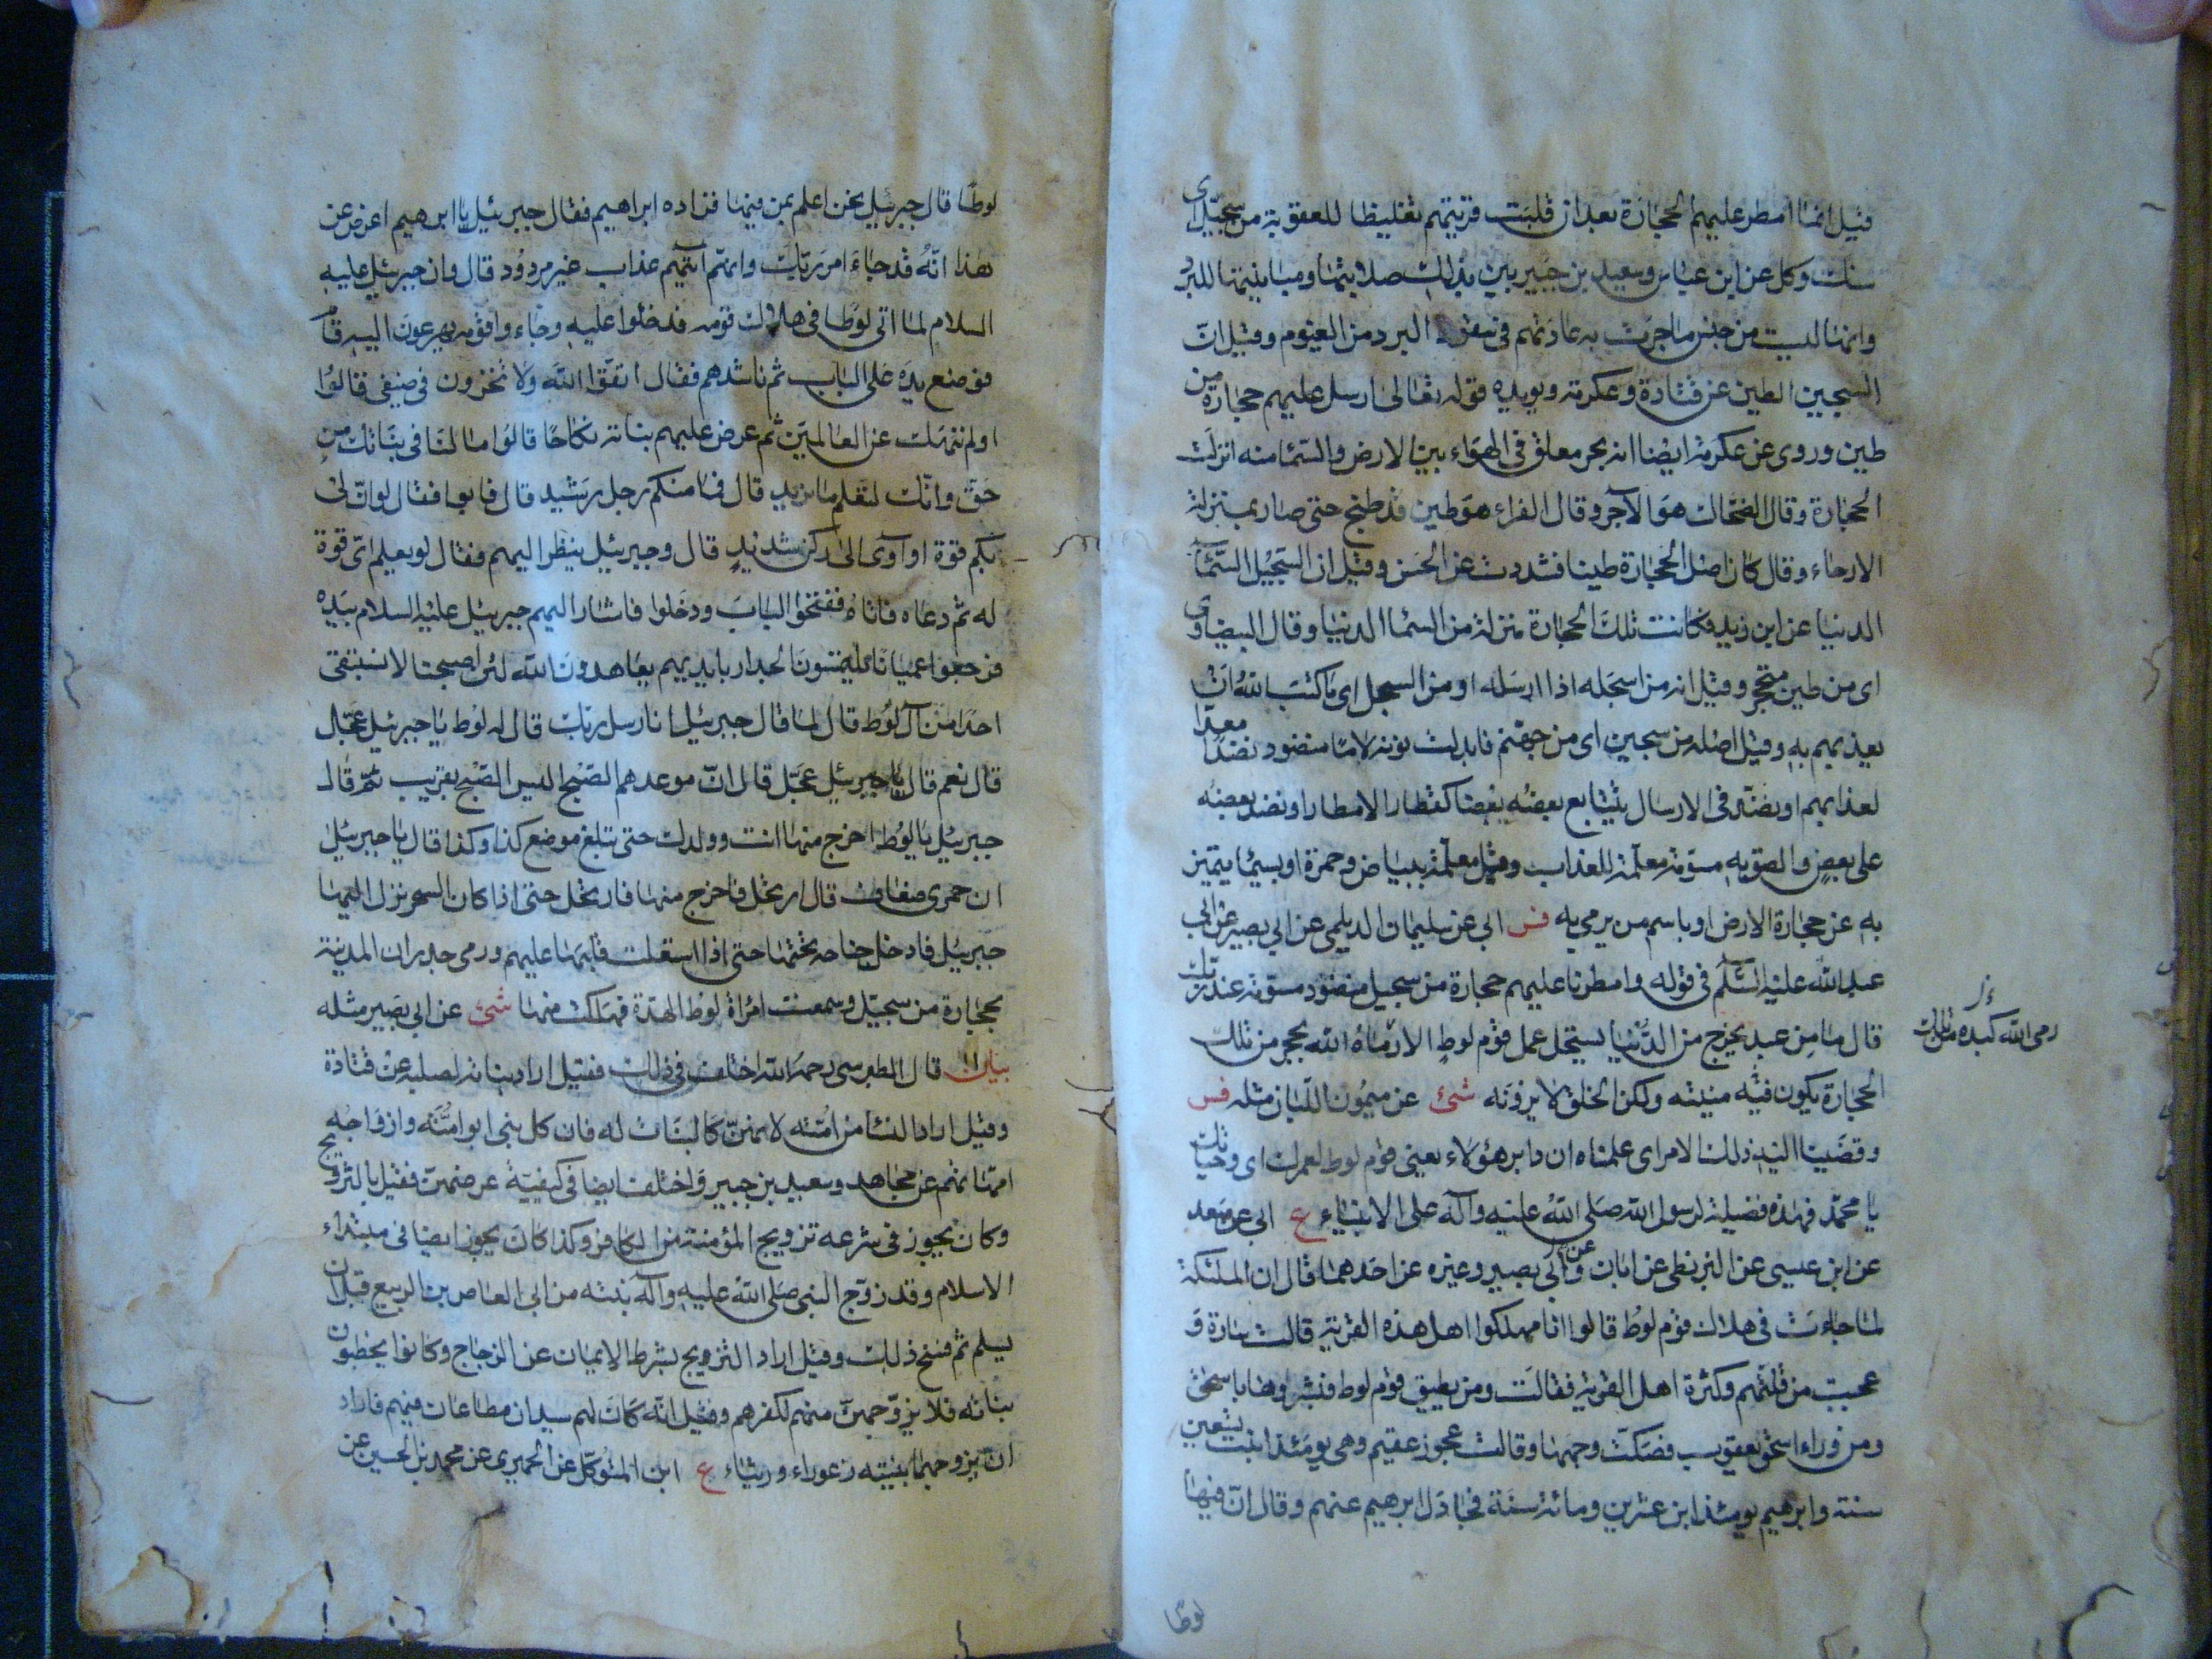 قيل انما امطر عليهم الحجارة بعد ان قلبت قريتهم تغليظا للعقوبة من سجيل اى
سنك وكل عن ابن عباس وسعيد بن جبير بين بذلك صلابتها ومباينتها للبرد
وانها ليست من جنس ما جرت به عادتهم في سقوط البرد من الغيوم وقيل ان
السجين الطين عن قتادة وعكرمة ويويده قوله تعالى لنرسل عليهم حجارة من
طين وروى عن عكرمة ايضا انه بحر معلق في الهواء بين الارض والسماء منه انزلت
الحجارة وقال الضحاك هو الآجر وقال الفراء هو طين قد طبخ حتى صار بمنزلة
الارحاء وقال كان اصل الحجارة طينا فشددت عن الحسن وقيل ان السجيل السماء
الدنيا عن ابن زيد فكانت تلك الحجارة منزلة من السماء الدنيا وقال البيضاوى
اى من طين متحجر وقيل انه من اسجله اذا ارسله او من السجل اى ما كتب الله ان
يعذبهم به وقيل اصله من سجين اى من جهنم فابدلت نونه لاما منضود نضد معدا
لعذابهم او نضد في الارسال يتتابع بعضه بعضا كقطار الامطار او نضد بعضه
على بعض والصق به مسومة معلمة للعذاب وقيل معلمة ببياض وحمرة او بسيما يتميز
به عن حجارة الارض او باسم من يرمى به فس ابي عن سليمان الديلمى عن ابي بصير عن ابي
عبد الله عليه السلم في قوله وامطرنا عليهم حجارة من سجيل منضود مسومة عند ربك
قال ما من عبد يخرج من الدنيا يستحل عمل قوم لوط الا رماه الله بحجر من تلك
رمى الله كبده من تلك
الحجارة يكون فيه منيته ولكن الخلق لا يرونه شى عن ميمون اللبان مثله فس
وقضينا اليه ذلك الامر اى علمناه ان دابر هؤلاء يعني قوم لوط لعمرك اى وحياتك
يا محمد فهذه فضيلة لرسول الله صلى الله عليه وآله على الانبياء ع ابي عن سعد
عن ابن عيسى عن البزنطى عن ابان عن ابي بصير وغيره عن احدهما قال ان الملئكة
لما جاءت في هلاك قوم لوط قالوا انا مهلكوا اهل هذه القرية قالت سارة و
عجبت من قلتهم وكثرة اهل القرية فقالت ومن يطيق قوم لوط فبشروها باسحق
ومن وراء اسحق يعقوب فصكت وجهها وقالت عجوز عقيم وهى يومئذ ابنت تسعين
سنة وابرهيم يومئذ ابن عشرين ومائة سنة فجادل ابرهيم عنهم وقال ان فيها
لوطا
لوطا قال جبرئيل نحن اعلم بمن فيها فزاده ابراهيم فقال جبرئيل يا ابرهيم اعرض عن
هذا انه قد جاء امر ربك وانهم آتيهم عذاب غير مردود قال وان جبرئيل عليه
السلام لما اتى لوطا في هلاك قومه فدخلوا عليه وجاءه قومه يهرعون اليه قام
فوضع يده على الباب ثم ناشدهم فقال اتقوا الله ولا تخزون في ضيفي قالوا
اولم ننهك عن العالمين ثم عرض عليهم بناته نكاحا قالوا ما لنا في بناتك من
حق وانك لتعلم ما نريد قال فما منكم رجل رشيد قال فابوا فقال لو ان لى
بكم قوة او آوى الى ركن شديد قال وجبرئيل ينظر اليهم فقال لو يعلم اى قوة
له ثم دعاه فاتاه ففتحوا الباب ودخلوا فاشار اليهم جبرئيل عليه السلام بيده
فرجعوا عميانا يلتمسون الجدار بايديهم يعاهدون الله لئن اصبحنا لا نستبقى
احدا من آل لوط قال لما قال جبرئيل انا رسل ربك قال له لوط يا جبرئيل عجل
قال نعم قال يا جبرئيل عجل قال ان موعدهم الصبح اليس الصبح بقريب ثم قال
جبرئيل يا لوط اخرج منها انت وولدك حتى تبلغ موضع كذا وكذا قال يا جبرئيل
ان حمرى ضعاف قال ارتحل فاخرج منها فارتحل حتى اذا كان السحر نزل اليها
جبرئيل فادخل جناحه تحتها حتى اذا استقلت قلبها عليهم ورمى جدران المدينة
بحجارة من سجيل وسمعت امراة لوط الهدة فهلكت منها شى عن ابي بصير مثله
بيان قال الطبرسى رحمه الله اختلف في ذلك فقيل اراد بناته لصلبه عن قتادة
وقيل اراد النساء من امته لانهن كالبنات له فان كل نبى ابو امته وازواجه
امهاتهم عن مجاهد وسعيد بن جبير واختلف ايضا في كيفية عرضهن فقيل بالتزويج
وكان يجوز في شرعه تزويج المؤمنة من الكافر وكذا كان يجوز ايضا في مبتداء
الاسلام وقد زوج النبى صلى الله عليه وآله بنته من ابي العاص بن الربيع قبل ان
يسلم ثم نسخ ذلك وقيل اراد التزويج بشرط الايمان عن الزجاج وكانوا يخطبون
بناته فلا يزوجهن منهم لكفرهم وقيل انه كان لهم سيدان مطاعان فيهم فاراد
ان يزوجهما بنتيه زعوراء وريثاء ع ابن المتوكل عن الحميرى عن محمد بن الحسين عن